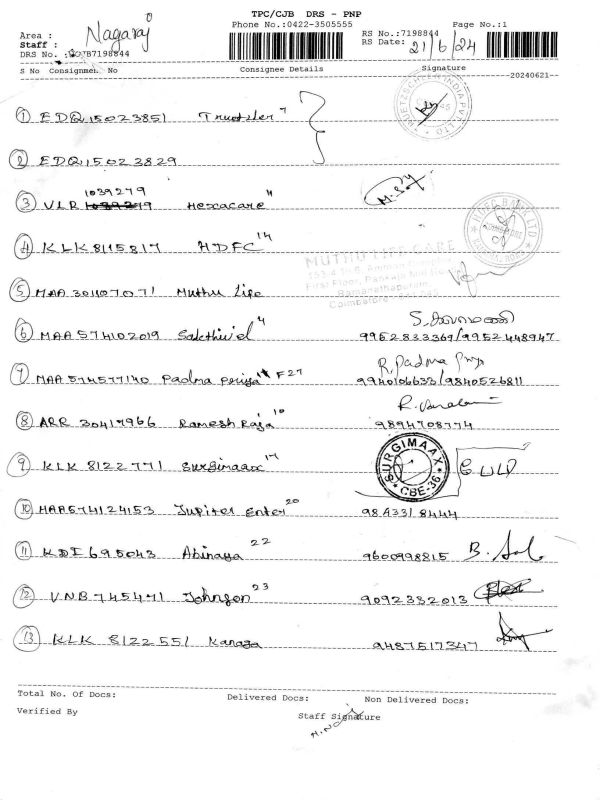 TPC/CJB DRS - PNP
Phone No.:0422-3505555 Page No.:1
Area : Nagaraj
Staff :
RS No.:7198844
RS Date: 21/6/24
DRS No. : CJB7198844
S No Consignment No Consignee Details Signature
--20240621--
1 EDQ15023851
2 EDQ15023829
1039279
3 VLR Hexacare
4 KLK8115817 HDFC 14
MUTHU LIFE CARE
First Floor,
Ramanathapuram,
Coimbatore
5 MAA301107071 Muthu Life
6 MAA574102019 Sakthivel 9952833369/9952448947
R. Padma Priya
7 MAA574577140 Padma Priya F27 9940106633/9840526811
8 ARR 30417966 Ramesh Raja 10 9894708774
9 KLK 8122771 Surgimaax 17
SURGIMAAX
CBE-36
10 MAA574124153 Jupiter Enter 20 9843318444
11 KDI695043 Abinaya 22 9600998815
12 VNB745471 Johnson 23 9092332013
13 KLK 8122551 Kanaga 9487517347
Total No. Of Docs: Delivered Docs: Non Delivered Docs:
Verified By Staff Signature